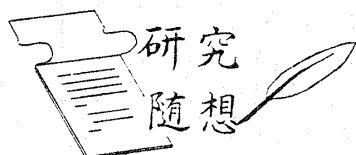 研究
随想